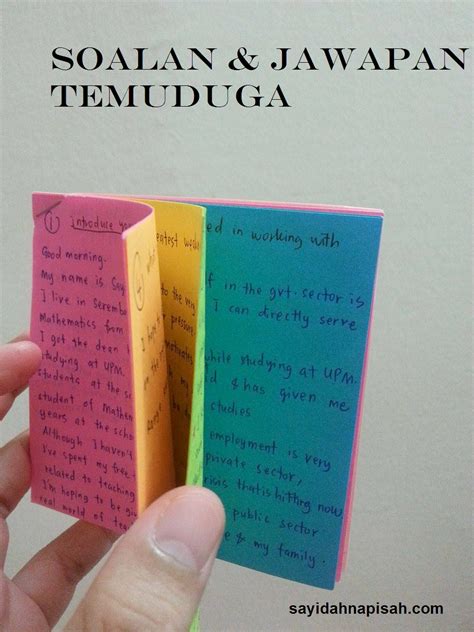 SOALAN & JAWAPAN
TEMUDUGA
① Introduce
Good morning.
My name is Say
I live in Seremb
Mathematics from
I got the dean
studying at UPM.
students at the sc
student of Mathem
years at the scho
Although I haven't
I've spent my free
related to teaching
I'm hoping to be gi
real world of tea
④
ed in working with
f in the gvt. sector is
I can directly serve
while studying at UPM.
d & has given me
studies
employment is very
private sector,
crisis that is hitting now
public sector
e & my family.
sayidahnapisah.com